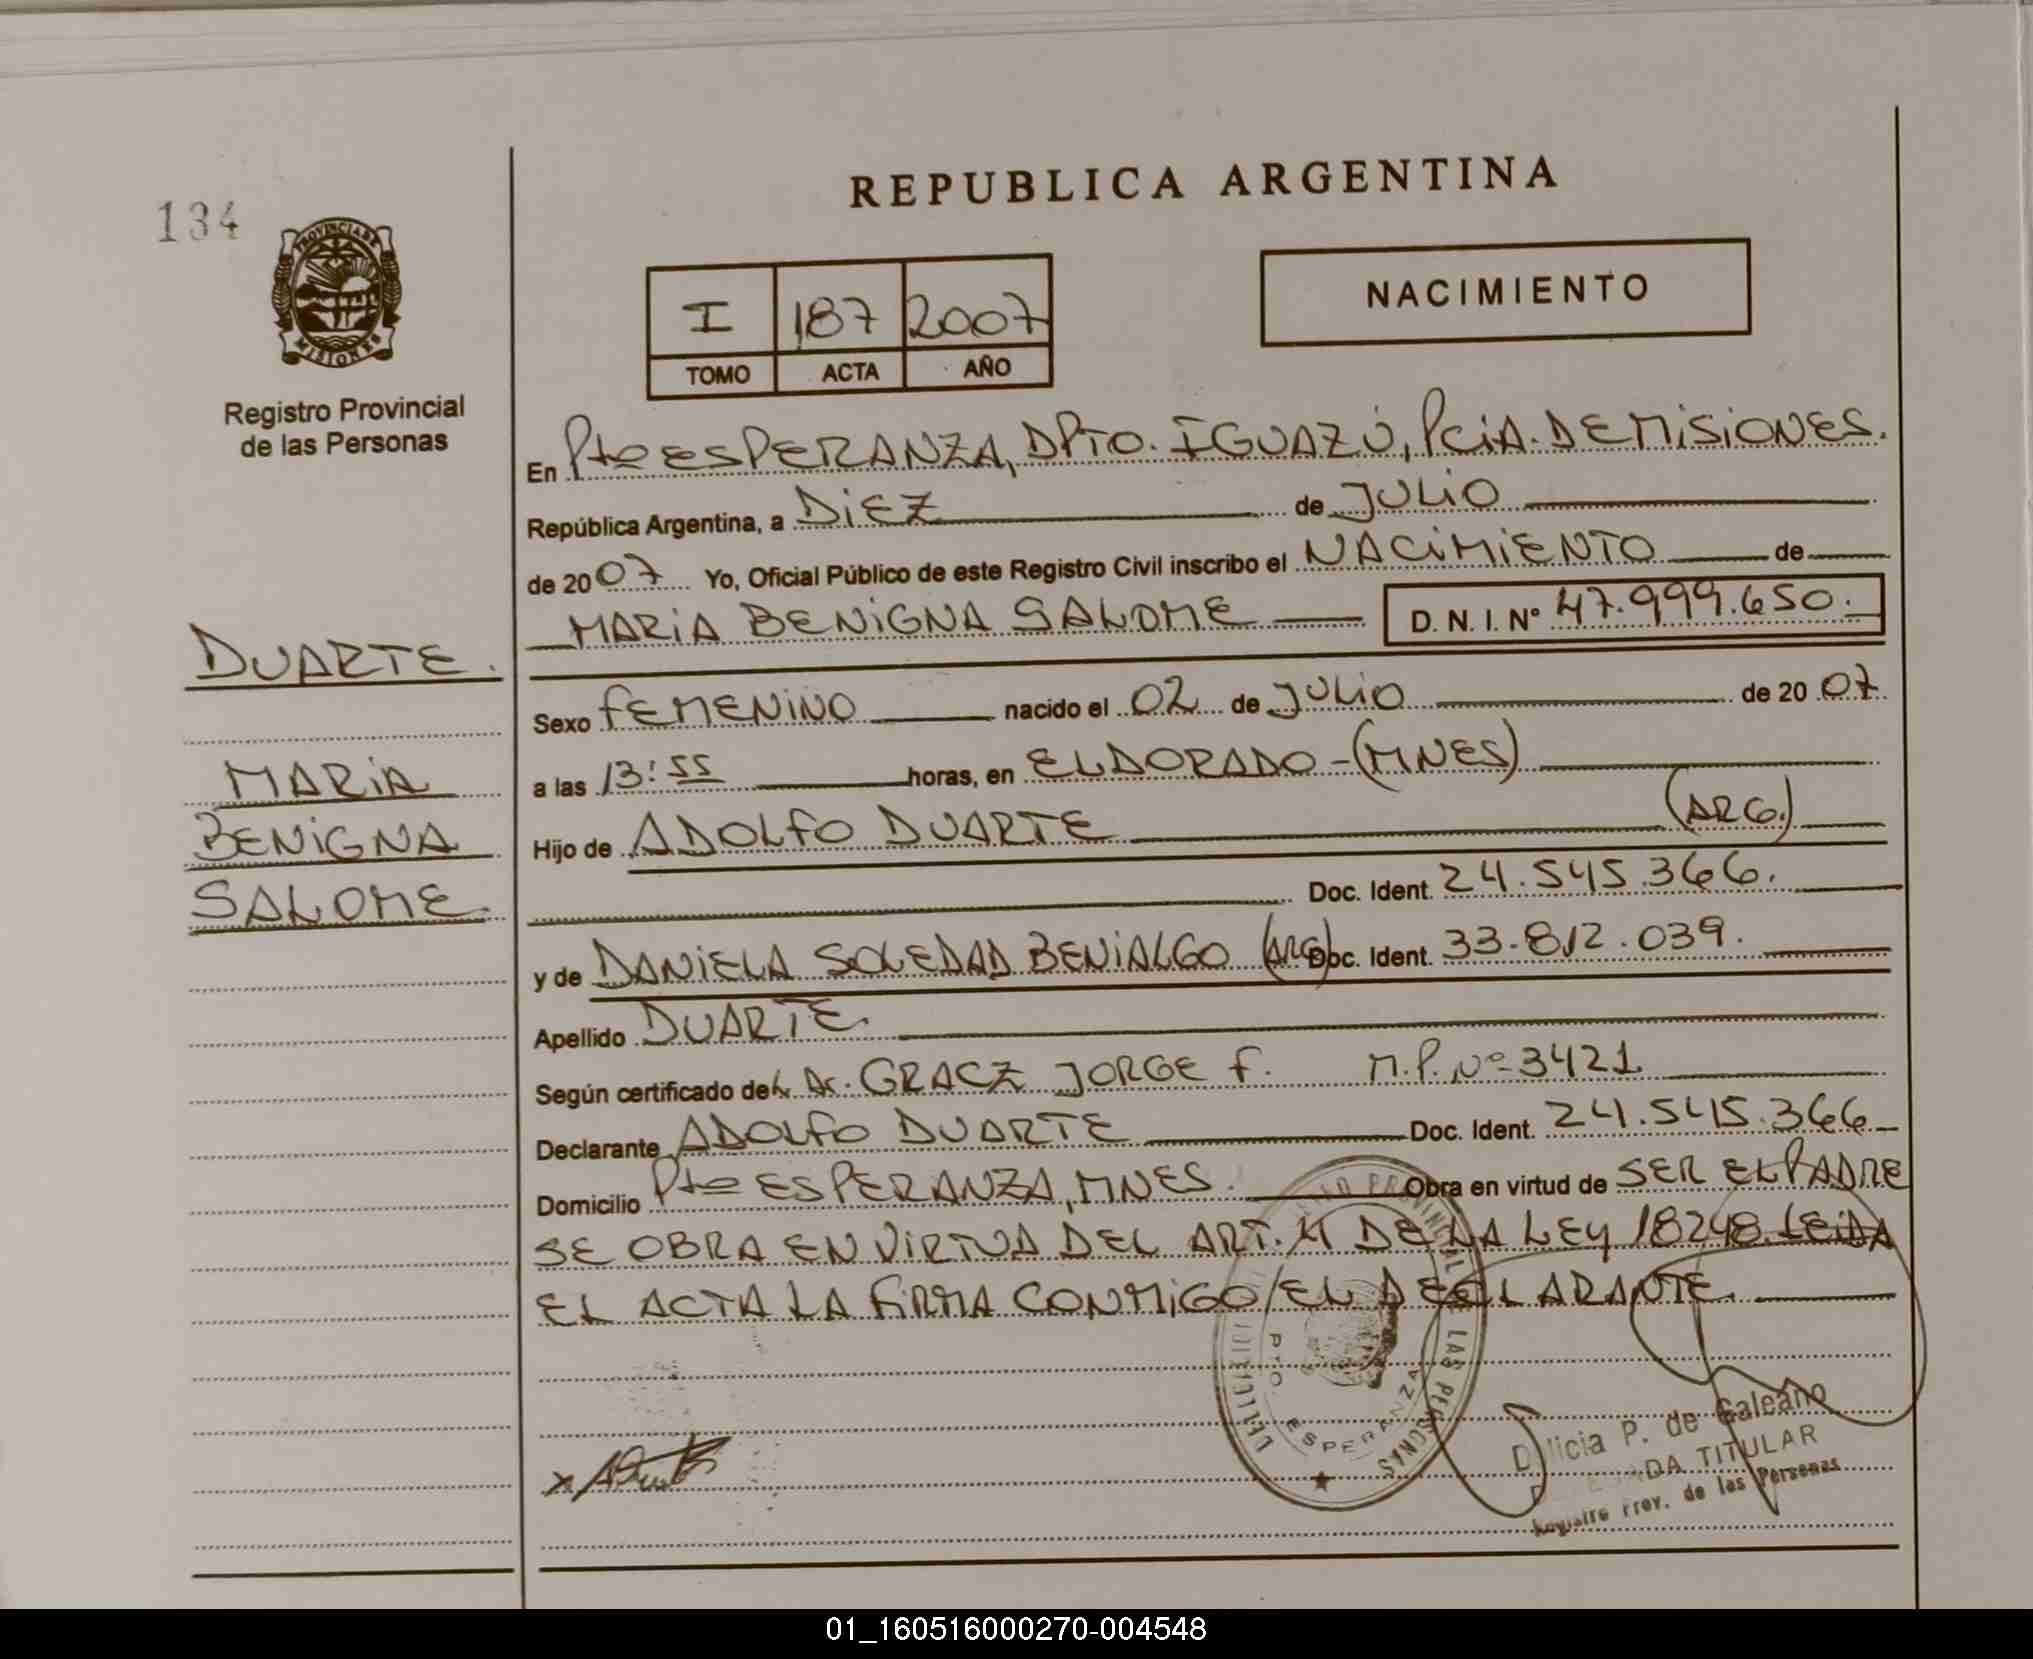 REPUBLICA ARGENTINA
134
PROVINCIA DE
MISIONES
Registro Provincial
de las Personas
I 187 2007
TOMO ACTA AÑO
NACIMIENTO
En Pto ESPERANZA, DPTO. IGUAZÚ, PCIA. DE MISIONES.
República Argentina, a DIEZ de JULIO
de 2007 Yo, Oficial Público de este Registro Civil inscribo el NACIMIENTO de
MARIA BENIGNA SALOME D. N. I. Nº 47.999.650.
DUARTE.
MARIA
BENIGNA
SALOME.
Sexo FEMENINO nacido el 02 de JULIO de 2007
a las 13:55 horas, en ELDORADO-(MNES)
Hijo de ADOLFO DUARTE (ARG.)
Doc. Ident. 24.545.366.
y de DANIELA SOLEDAD BENIALGO (ARG) Doc. Ident. 33.812.039.
Apellido DUARTE.
Según certificado del Dr. GRACZ JORGE F. M.P. Nº 3421
Declarante ADOLFO DUARTE Doc. Ident. 24.545.366
Domicilio Pto ESPERANZA, MNES. Obra en virtud de SER EL PADRE
SE OBRA EN VIRTUD DEL ART. DE LA LEY 18248. LEIDA
EL ACTA LA FIRMA CONMIGO/EL DECLARANTE.
LAS PERSONAS
PTO. ESPERANZA
P. de Galeano
TITULAR
Registro Prov. de las Personas
01_160516000270-004548